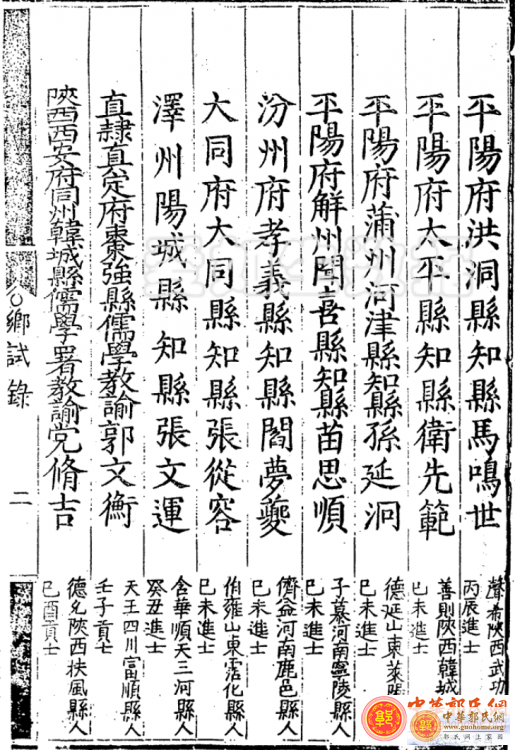 平陽府洪洞縣知縣馬鳴世
聲希陝西武功
丙辰進士
平陽府太平縣知縣衛先範
善則陝西韓城
己未進士
平陽府蒲州河津縣知縣孫延洞
德延山東萊陽
己未進士
平陽府解州聞喜縣知縣苗思順
子慕河南寧陵縣人
己未進士
汾州府孝義縣知縣閻夢夔
儕益河南鹿邑縣人
己未進士
大同府大同縣知縣張從容
伯雍山東霑化縣人
己未進士
澤州陽城縣知縣張文運
含華順天三河縣人
癸丑進士
直隷真定府棗強縣儒學教諭郭文衡
天王四川富順縣人
壬子貢士
陝西西安府同州韓城縣儒學署教諭党脩吉
德允陝西扶風縣人
己酉貢士
鄉試錄
二
中華郭氏網
www.guohome.org